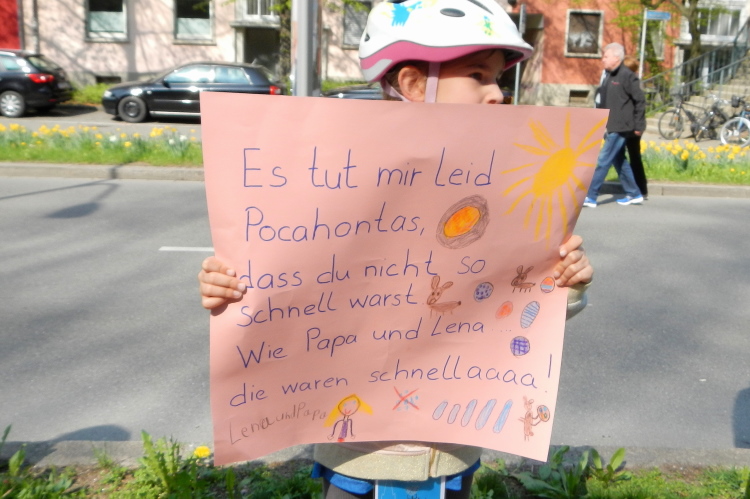 Es tut mir leid
Pocahontas,
dass du nicht so
schnell warst
Wie Papa und Lena ...
die waren schnellaaaa!
Lena und Papa